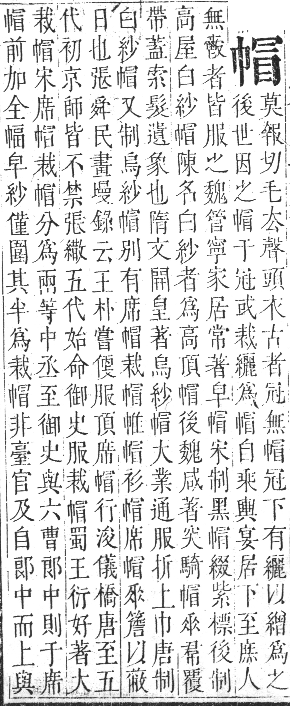 帽
莫報切毛去聲頭衣古者冠無帽冠下有纚以繒爲之
後世因之帽于冠或裁纚爲帽自乘輿宴居下至庶人
無爵者皆服之魏管寧家居常著皁帽宋制黑帽綴紫標後制
高屋白紗帽陳名白紗者爲高頂帽後魏咸著突騎帽垂帬覆
帶蓋索髮遺象也隋文開皇著烏紗帽大業通服折上巾唐制
白紗帽又制烏紗帽別有席帽裁帽帷帽衫帽席帽垂簷以蔽
日也張舜民畫墁錄云王朴嘗便服頂席帽行浚儀橋唐至五
代初京師皆不禁張繖五代始命御史服裁帽蜀王衍好著大
裁帽宋席帽裁帽分爲兩等中丞至御史與六曹郎中則于席
帽前加全幅皁紗僅圍其半爲裁帽非臺官及自郎中而上與